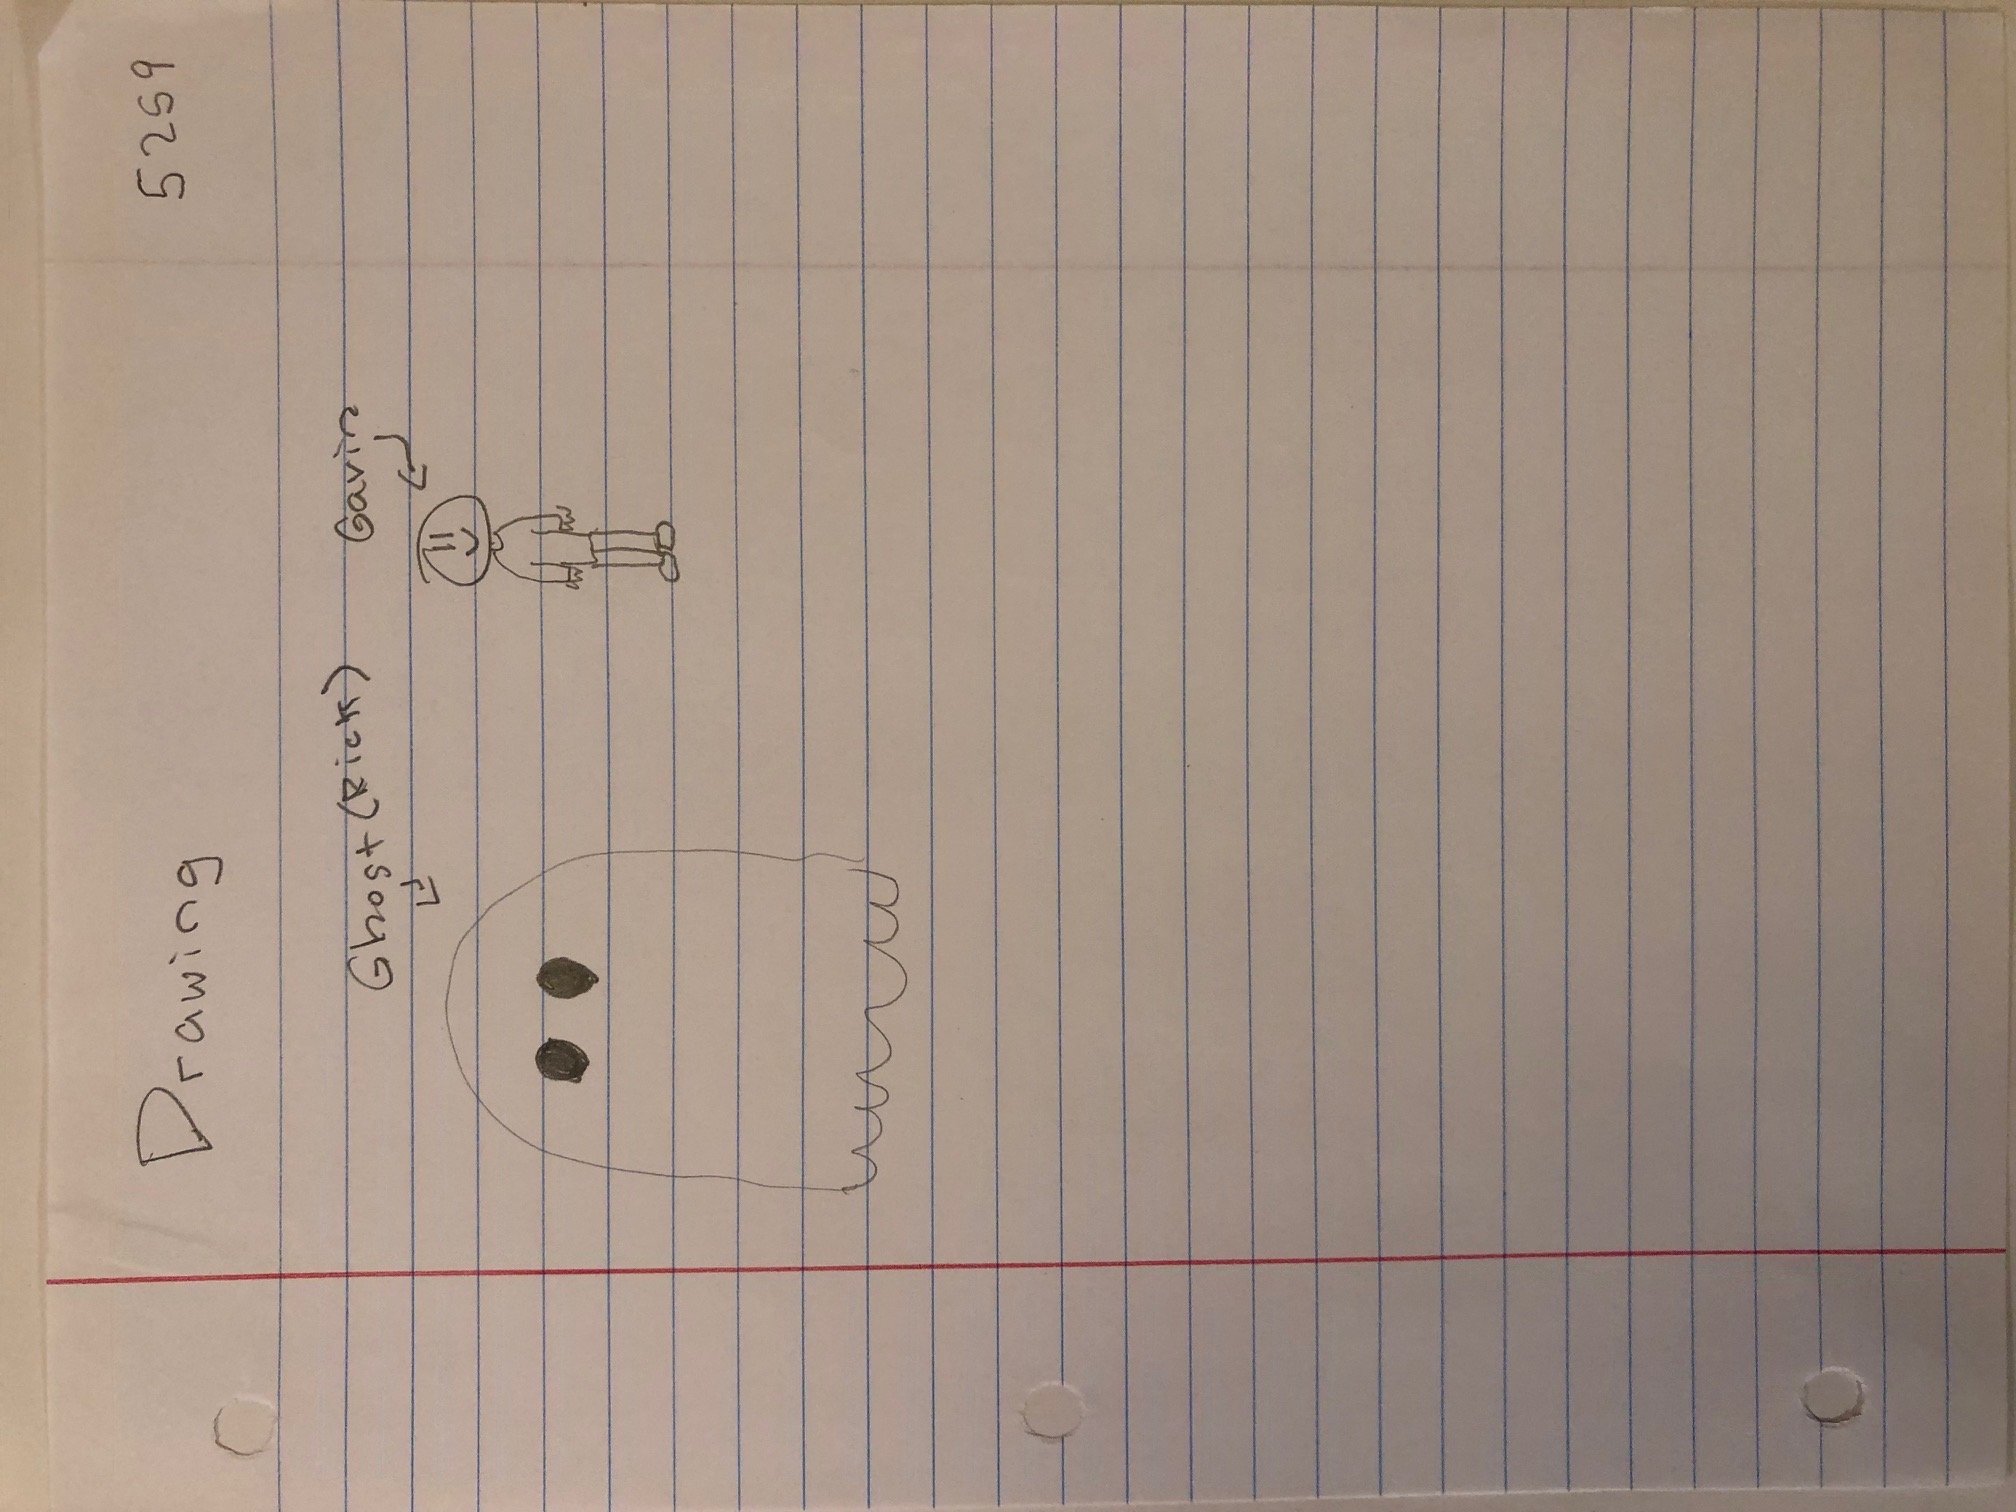 Drawing 5259
Ghost (Rick) Gavin